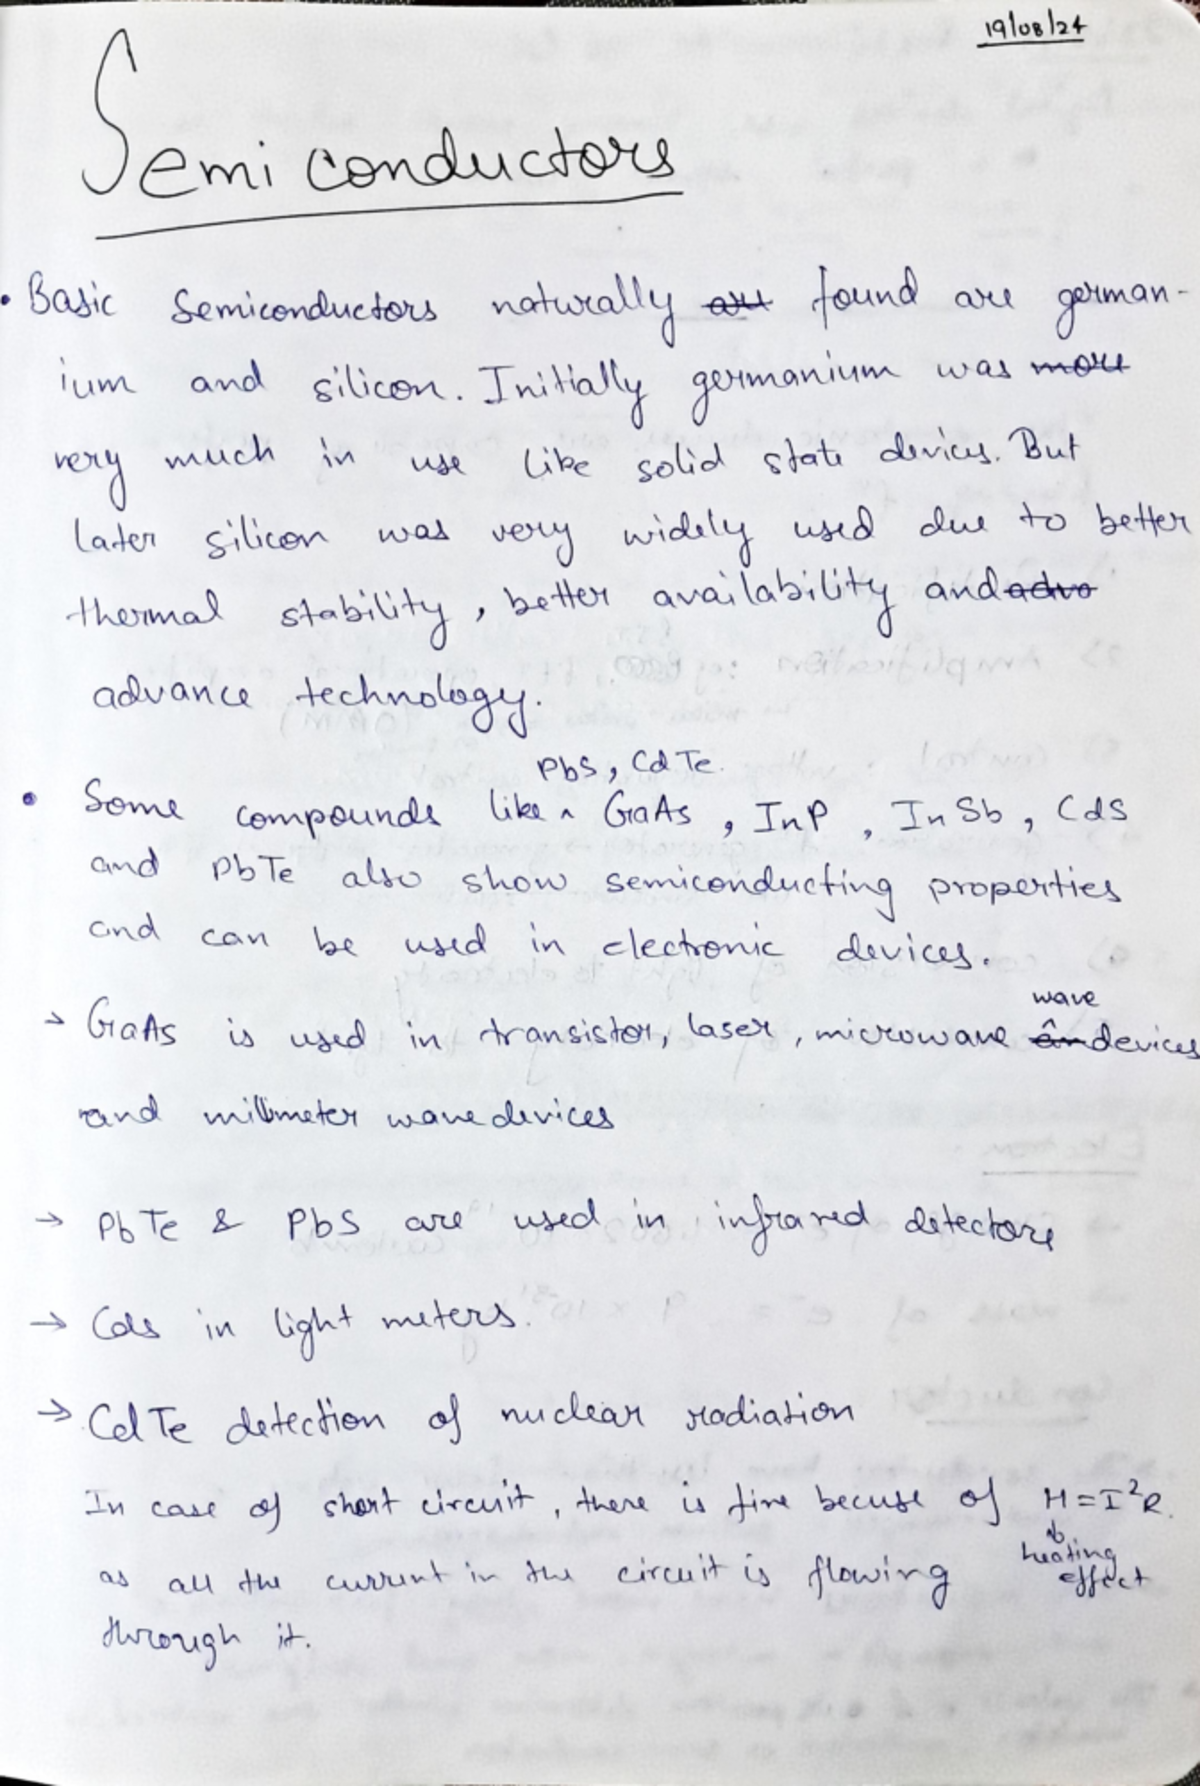 19/08/24
Semiconductors
• Basic Semiconductors naturally are found are german-
ium and silicon. Initially germanium was more
very much in use like solid state devices. But
later silicon was very widely used due to better
thermal stability, better availability and adva
advance technology.
PbS, CdTe.
• Some compounds like ^ GaAs, InP, InSb, CdS
and PbTe also show semiconducting properties
and can be used in electronic devices.
wave
→ GaAs is used in transistor, laser, microwave an devices
and millimeter wave devices
→ PbTe & PbS are used in infrared detectors
→ Cds in light meters.
→ CdTe detection of nuclear radiation
In case of short circuit, there is fire becuse of H=I²R.
heating
as all the current in the circuit is flowing effect
through it.